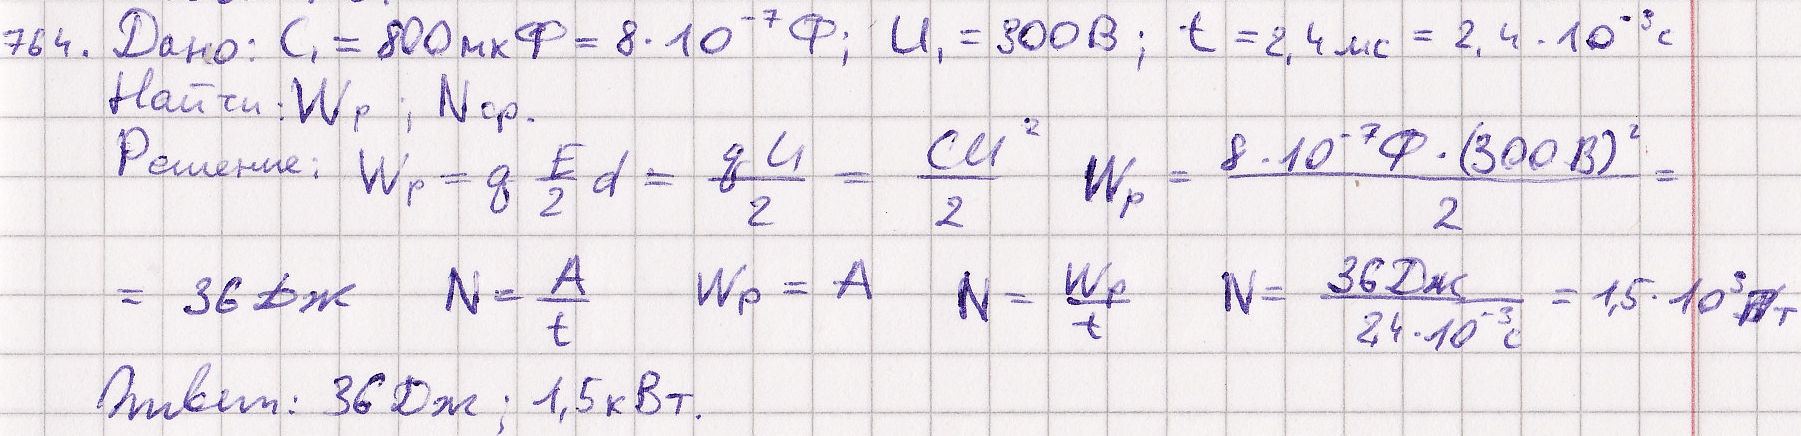 764. Дано: C₁ = 800 мкФ = 8·10⁻⁷ Ф; U₁ = 300 В; t = 2,4 мс = 2,4·10⁻³ с
Найти: Wр; Nср.
Решение: Wр = q E/2 d = qU/2 = CU²/2 Wр = 8·10⁻⁷Ф·(300В)²/2 =
= 36 Дж N = A/t Wр = A N = Wр/t N = 36Дж/2,4·10⁻³с = 1,5·10³Вт
Ответ: 36 Дж; 1,5 кВт.